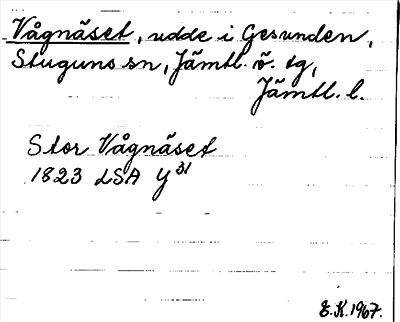 Vågnäset, udde i Gesunden,
Stuguns sn, Jämtl. ö. tg,
Jämtl. l.
Stor Vågnäset
1823 LSA Y³¹
E.K. 1967.